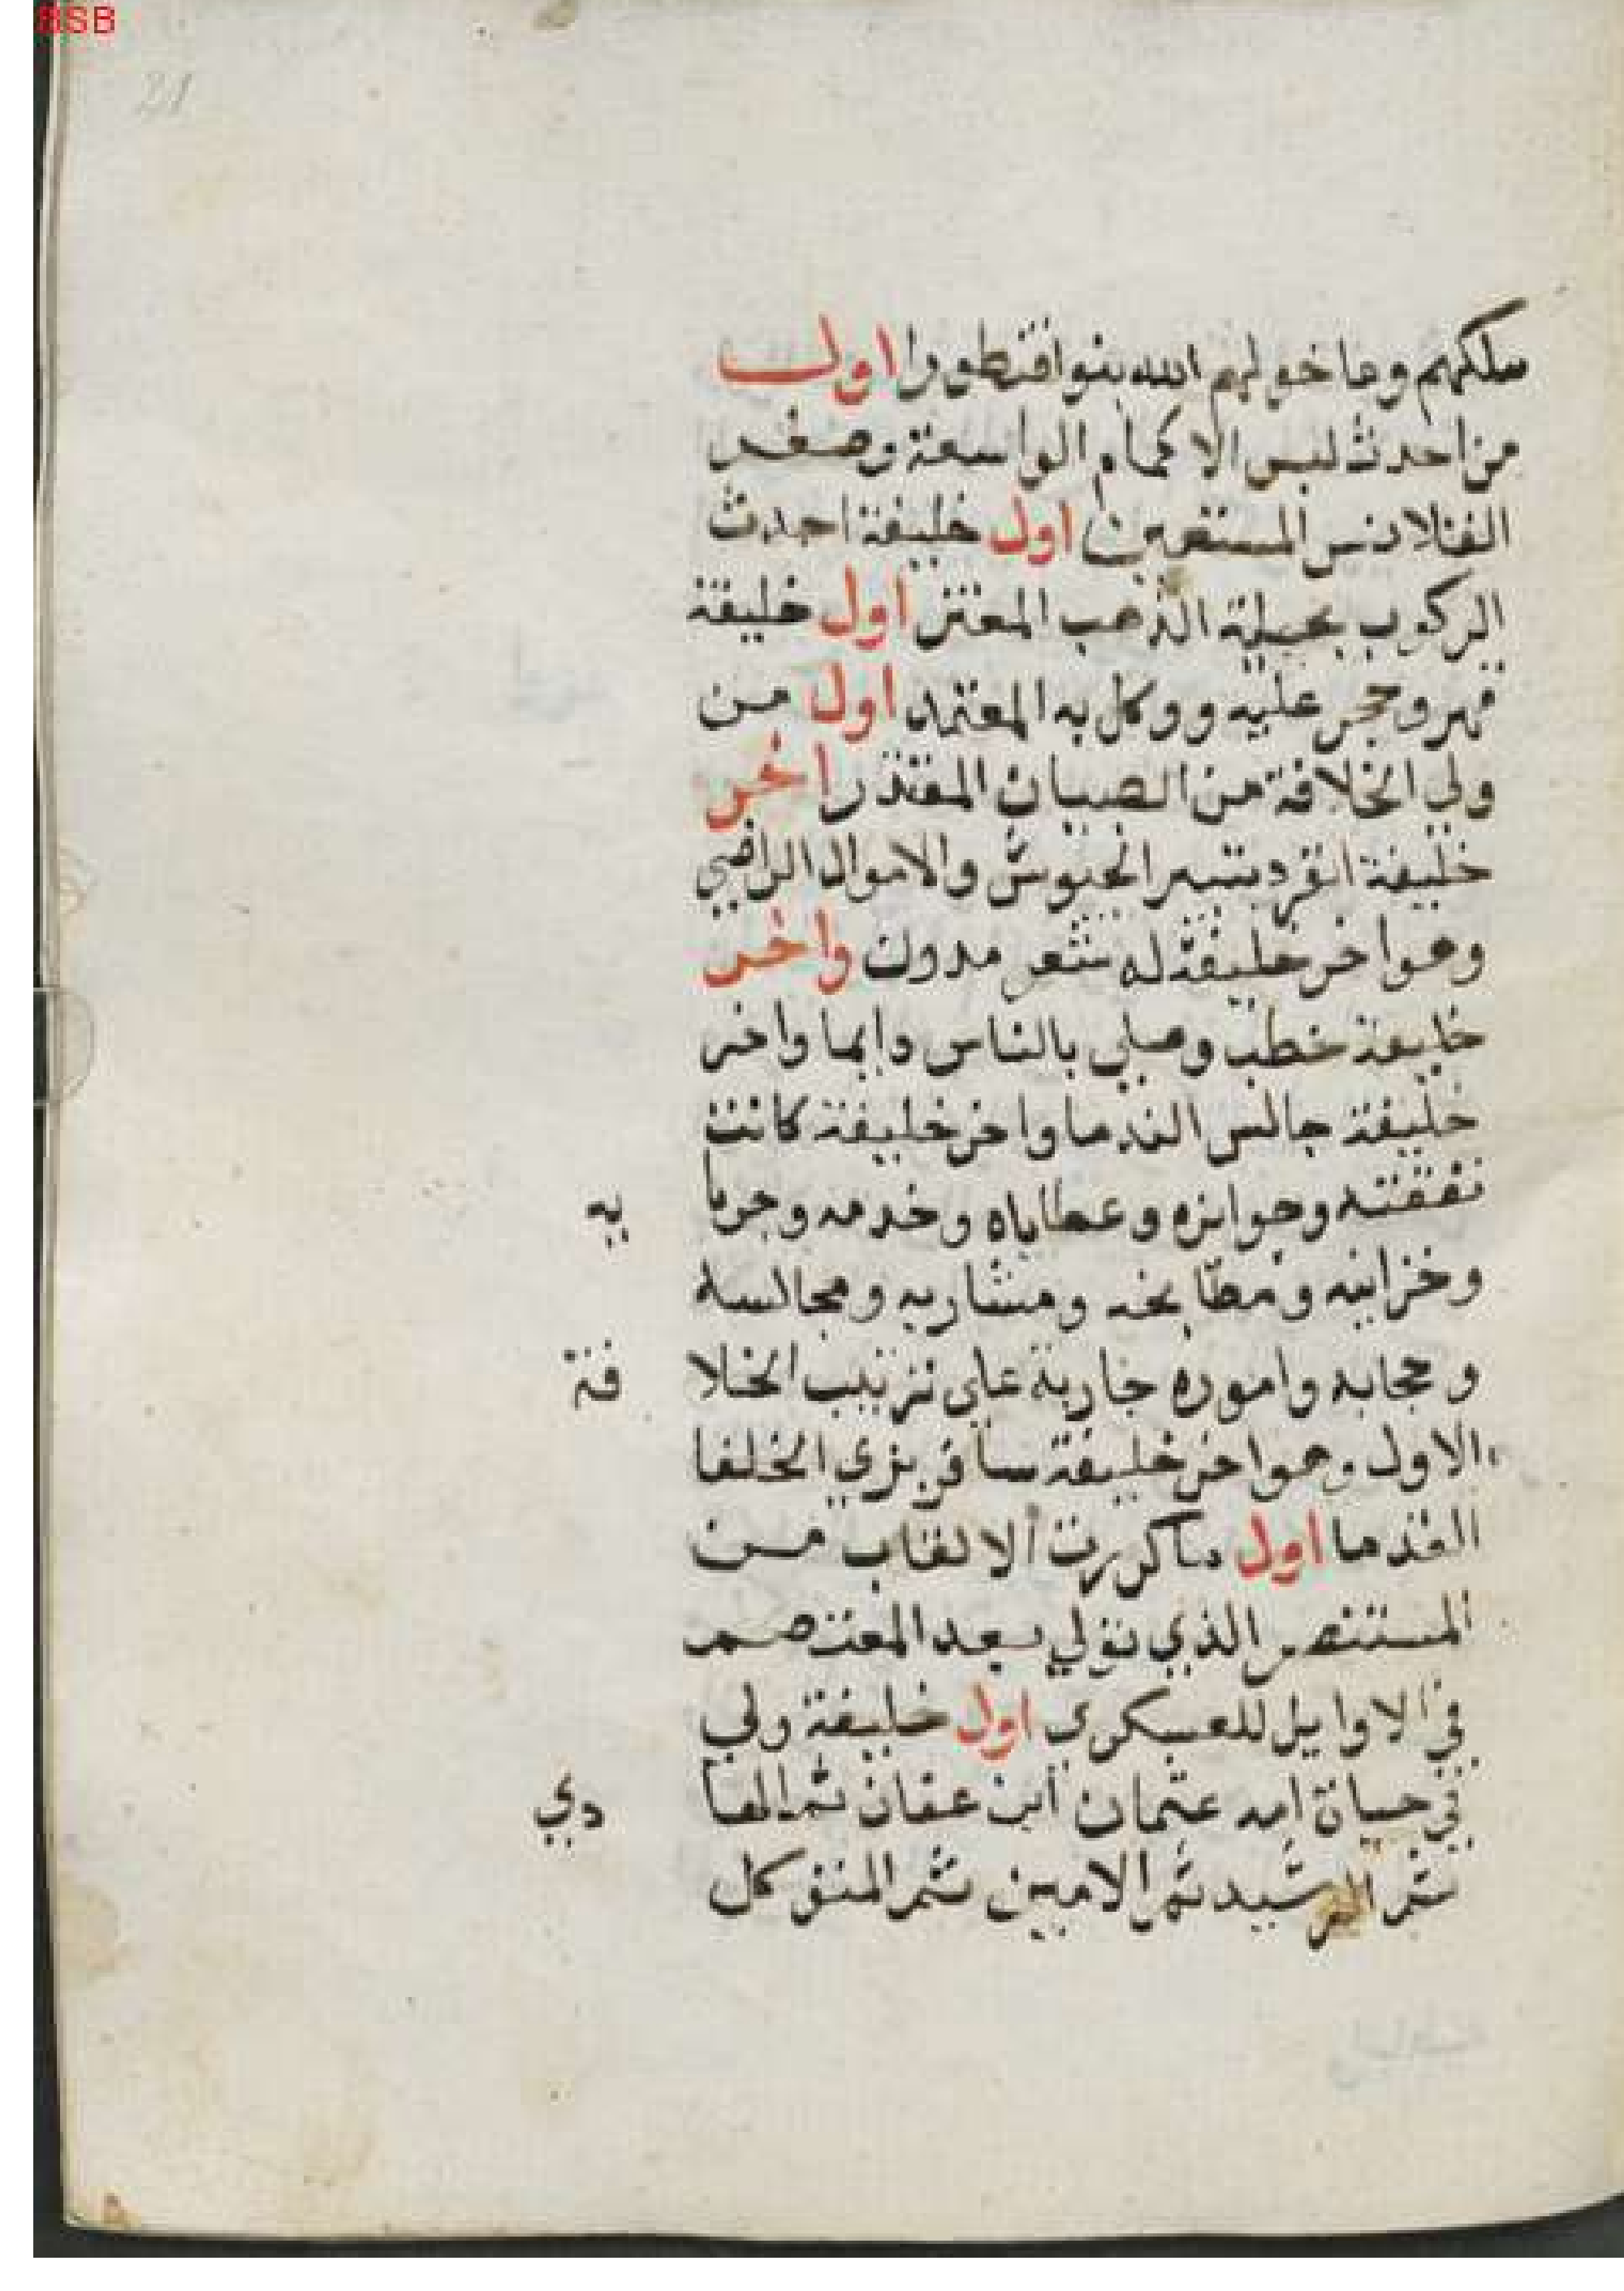 BSB
21
ملكهم وما خولهم الله بنوا قنطورا اول
من احدث لبس الاكمام الواسعة وصغر
القلانس المستعين اول خليفة احدث
الركوب بحيلية الذهب المعتز اول خليفة
قهر وحجر عليه ووكل به المعتمد اول من
ولي الخلافة من الصبيان المقتدر اخر
خليفة انفرد بتدبير الجيوش والاموال الراضي
وهو اخر خليفة له شعر مدون واخر
خليفة خطب وصلي بالناس دايما واخر
خليفة جالس الندما واخر خليفة كانت
نفقته وجوايزه وعطاياه وخدمه وجرايا يه
وخزاينه ومطابخه ومشاربه ومجالسه
وحجابه واموره جارية علي ترتيب الخلا فة
الاول وهو اخر خليفة سافر بزي الخلفا
القدما اول ما كررت الالقاب من
المستنصر الذي تولي بعد المعتصم
في الاوايل للعسكري اول خليفة ولي
في حياة امه عثمان ابن عفان ثم الها دي
ثم الرشيد ثم الامين ثم المتوكل